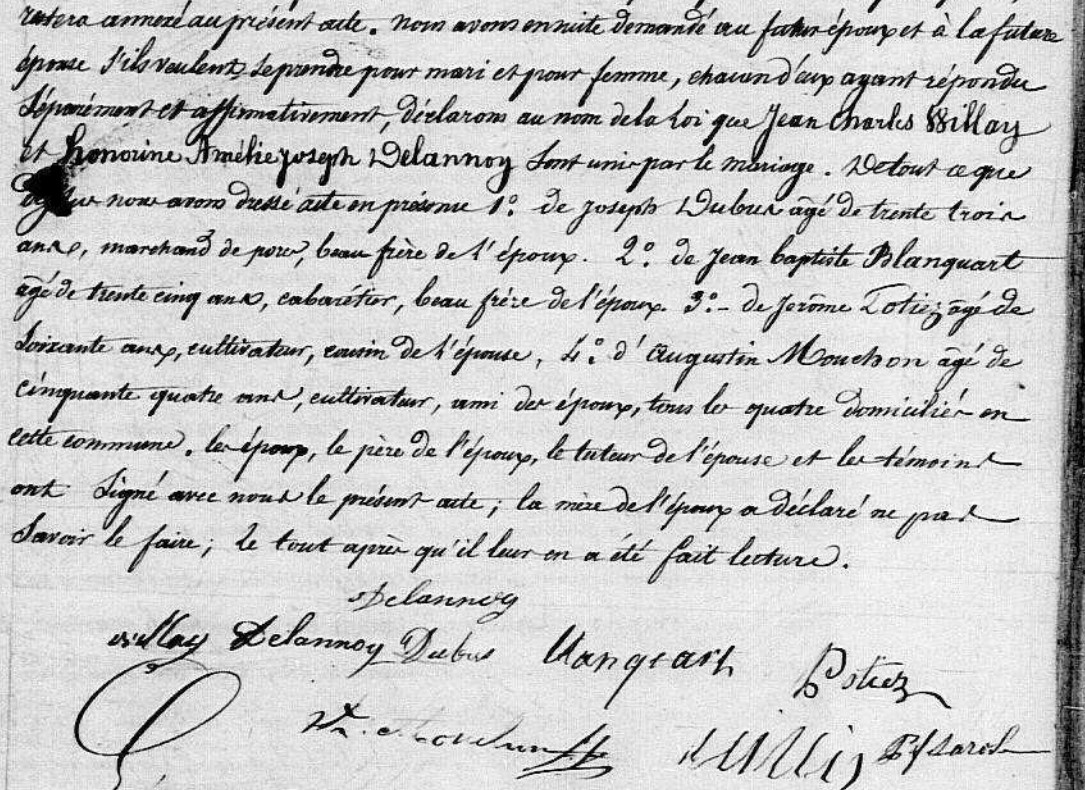 restera annexé au présent acte. nous avons ensuite demandé au futur époux et à la future
épouse s'ils veulent se prendre pour mari et pour femme, chacun d'eux ayant répondu
séparément et affirmativement, déclarons au nom de la Loi que Jean Charles Willay
et honorine Amélie joseph Delannoy sont unis par le mariage. De tout ce que
dessus nous avons dressé acte en présence 1º. de joseph Dubus âgé de trente trois
ans, marchand de porc, beau frère de l'époux. 2º. de Jean baptiste Blanquart
âgé de trente cinq ans, cabarétier, beau frère de l'époux. 3º- de Jerôme Potiez âgé de
soixante ans, cultivateur, cousin de l'épouse, 4º. d'Augustin Mouchon âgé de
cinquante quatre ans, cultivateur, ami des époux, tous les quatre domiciliés en
cette commune. les époux, le père de l'époux, le tuteur de l'épouse et les témoins
ont signé avec nous le présent acte; la mère de l'époux a déclaré ne pas
savoir le faire; le tout après qu'il leur en a été fait lecture.
Delannoy
willay Delannoy Dubus blanquart Potiez